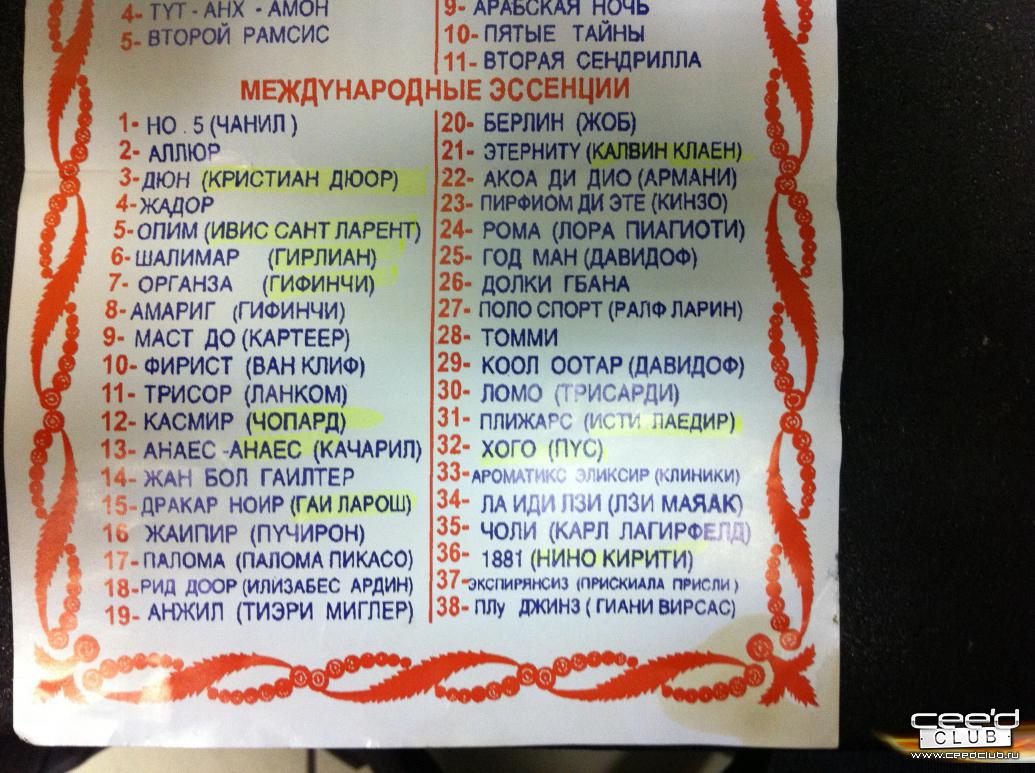 4- ТУТ - АНХ - АМОН
5- ВТОРОЙ РАМСИС
9- АРАБСКАЯ НОЧЬ
10- ПЯТЫЕ ТАЙНЫ
11- ВТОРАЯ СЕНДРИЛЛА
МЕЖДУНАРОДНЫЕ ЭССЕНЦИИ
1- НО . 5 (ЧАНИЛ )
2- АЛЛЮР
3- ДЮН (КРИСТИАН ДЮОР)
4- ЖАДОР
5- ОПИМ (ИВИС САНТ ЛАРЕНТ)
6- ШАЛИМАР (ГИРЛИАН)
7- ОРГАНЗА (ГИФИНЧИ)
8- АМАРИГ (ГИФИНЧИ)
9- МАСТ ДО (КАРТЕЕР)
10- ФИРИСТ (ВАН КЛИФ)
11- ТРИСОР (ЛАНКОМ)
12- КАСМИР (ЧОПАРД)
13- АНАЕС -АНАЕС (КАЧАРИЛ)
14- ЖАН БОЛ ГАИЛТЕР
15- ДРАКАР НОИР (ГАИ ЛАРОШ)
16 ЖАИПИР (ПУЧИРОН)
17- ПАЛОМА (ПАЛОМА ПИКАСО)
18- РИД ДООР (ИЛИЗАБЕС АРДИН)
19- АНЖИЛ (ТИЭРИ МИГЛЕР)
20- БЕРЛИН (ЖОБ)
21- ЭТЕРНИТУ (КАЛВИН КЛАЕН)
22- АКОА ДИ ДИО (АРМАНИ)
23- ПИРФИОМ ДИ ЭТЕ (КИНЗО)
24- РОМА (ЛОРА ПИАГИОТИ)
25- ГОД МАН (ДАВИДОФ)
26- ДОЛКИ ГБАНА
27- ПОЛО СПОРТ (РАЛФ ЛАРИН)
28- ТОММИ
29- КООЛ ООТАР (ДАВИДОФ)
30- ЛОМО (ТРИСАРДИ)
31- ПЛИЖАРС (ИСТИ ЛАЕДИР)
32- ХОГО (ПУС)
33- АРОМАТИКС ЭЛИКСИР (КЛИНИКИ)
34- ЛА ИДИ ЛЗИ (ЛЗИ МАЯАК)
35- ЧОЛИ (КАРЛ ЛАГИРФЕЛД)
36- 1881 (НИНО КИРИТИ)
37- ЭКСПИРЯНСИЗ (ПРИСКИАЛА ПРИСЛИ )
38- ПЛу ДЖИНЗ ( ГИАНИ ВИРСАС)
cee'd
CLUB
www.ceedclub.ru